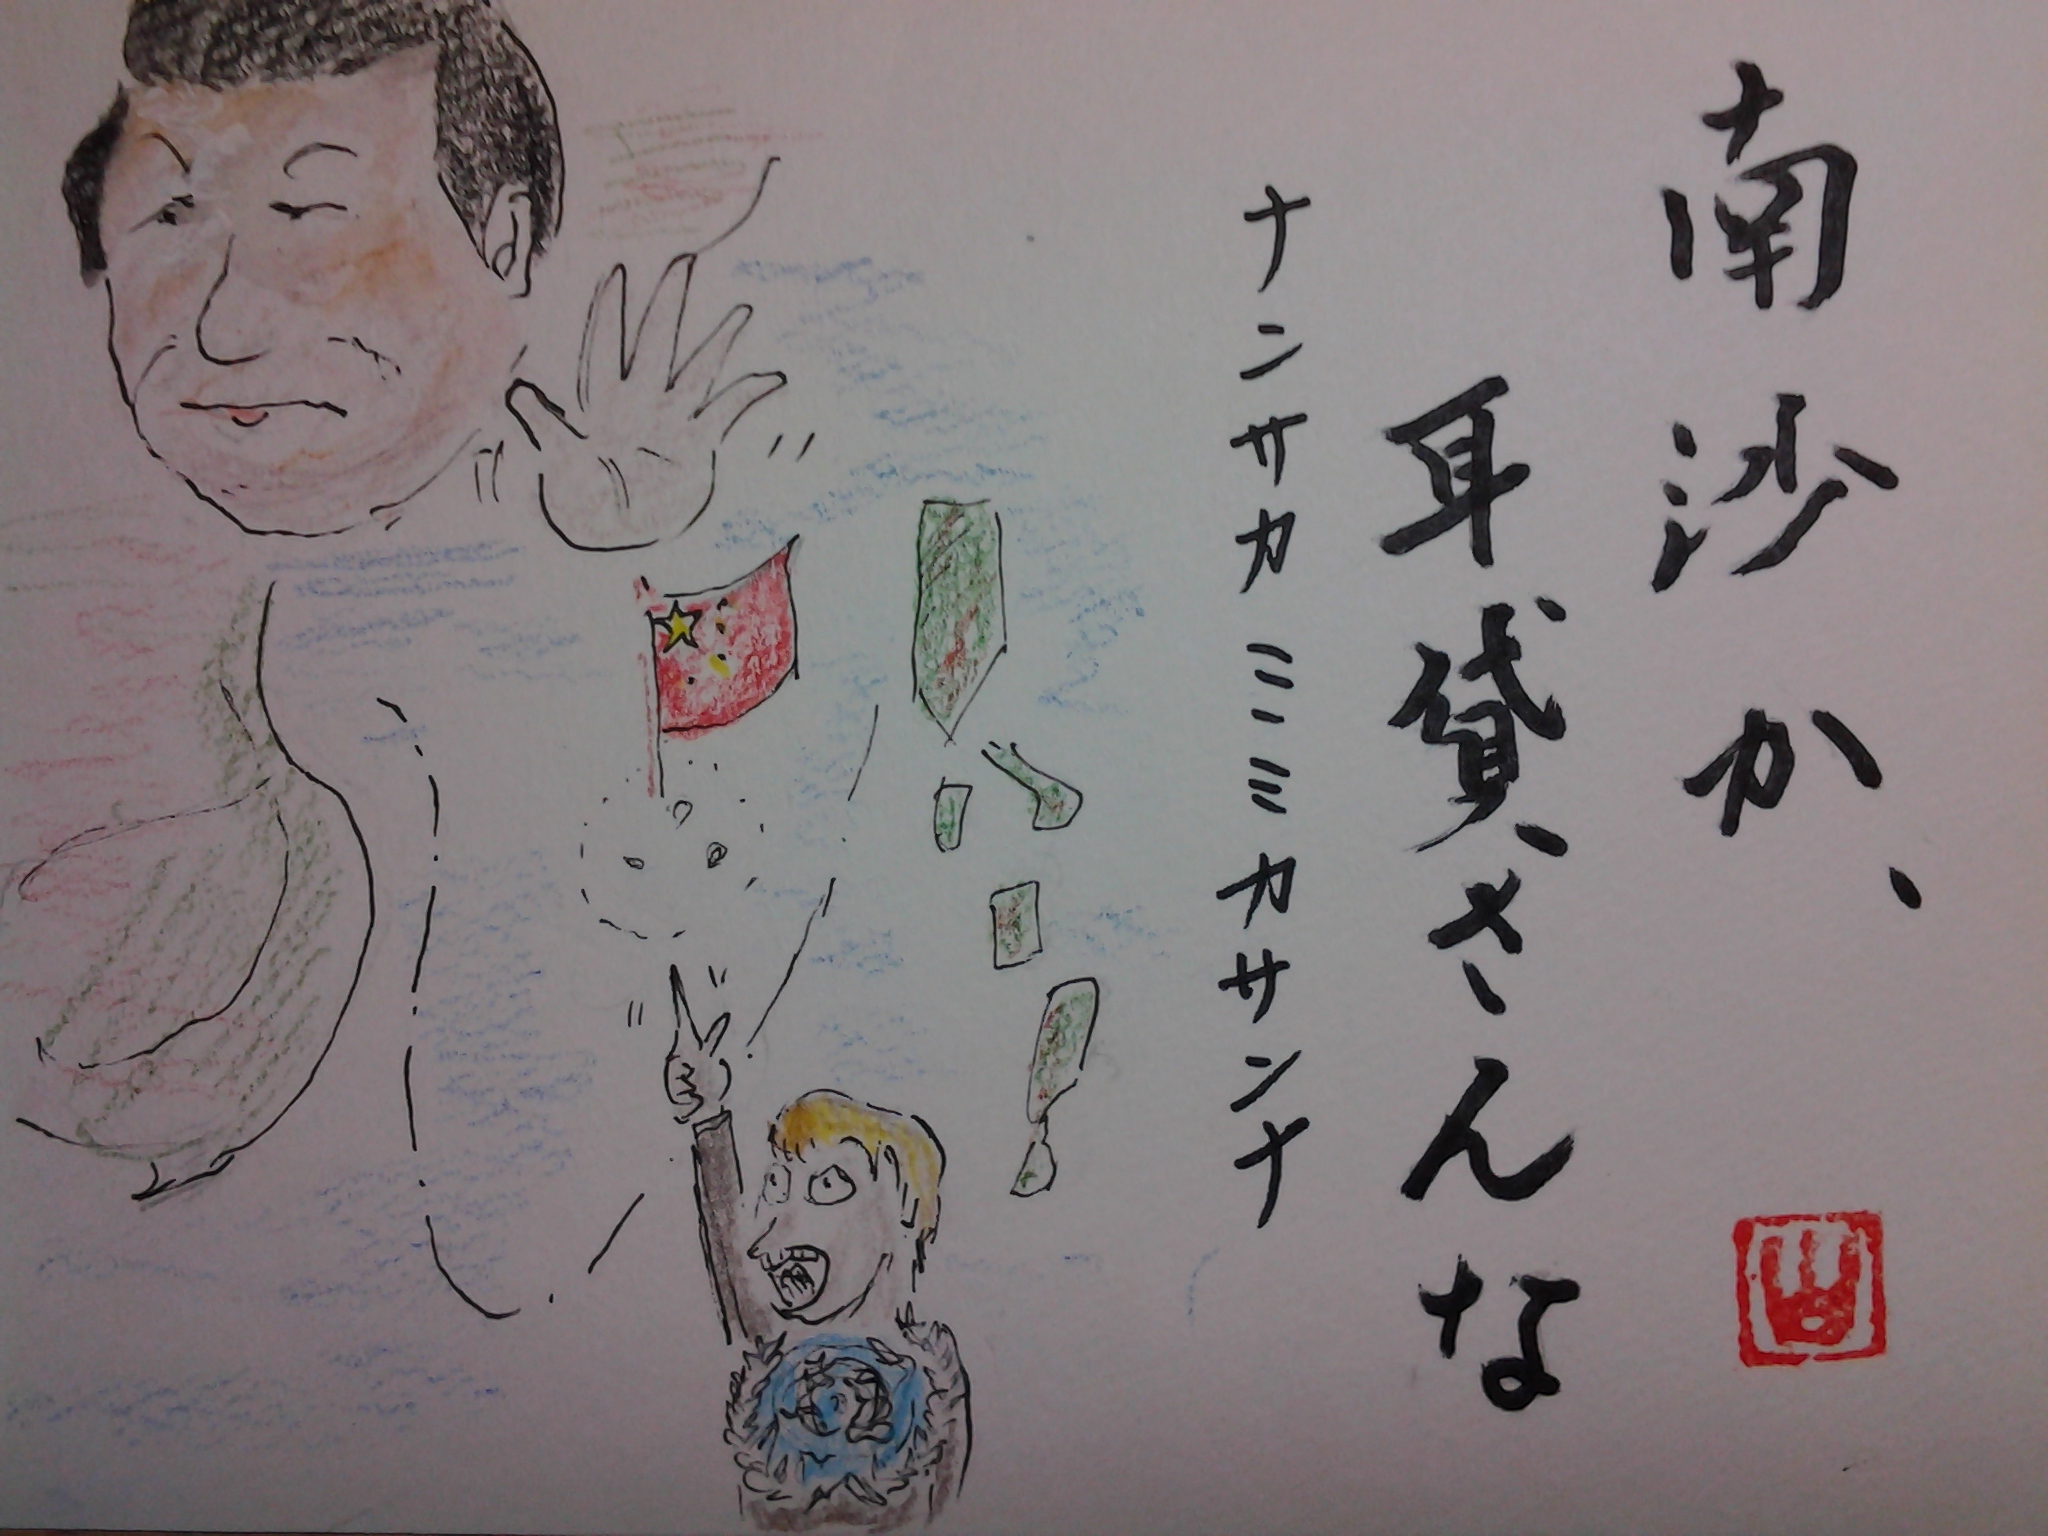 南沙か、
耳貸さんな
ナンサカミミカサンナ